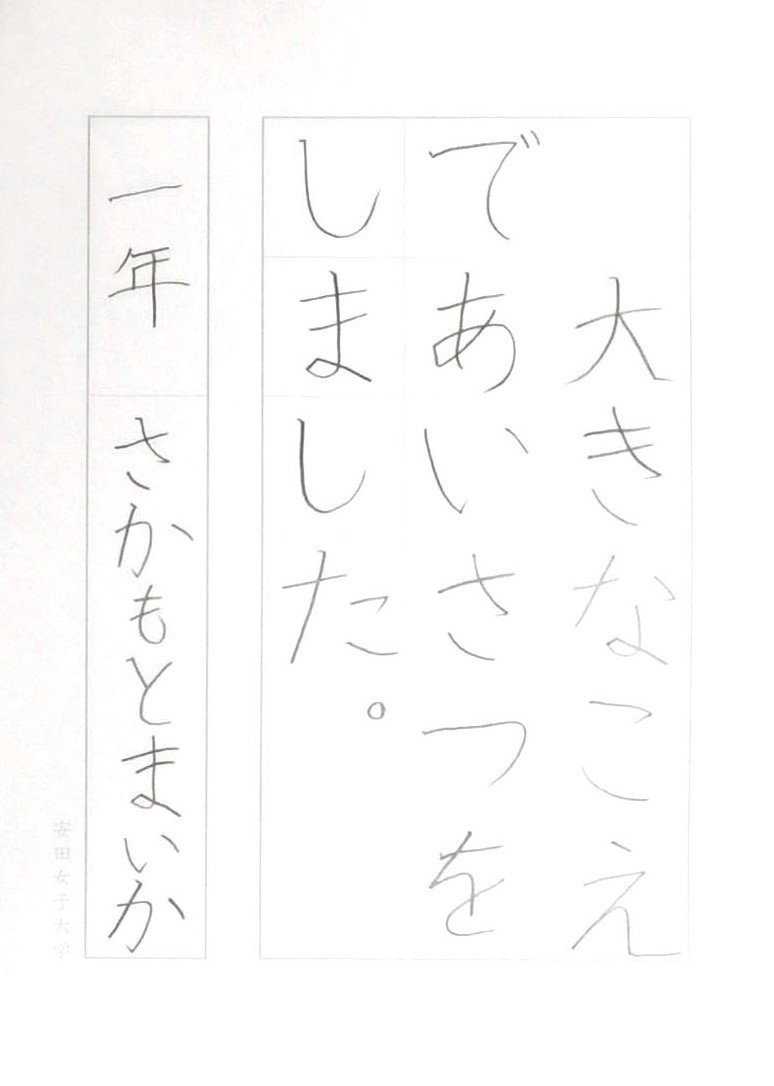 大きなこえ
であいさつを
しました。
一年 さかもとまいか
安田女子大学